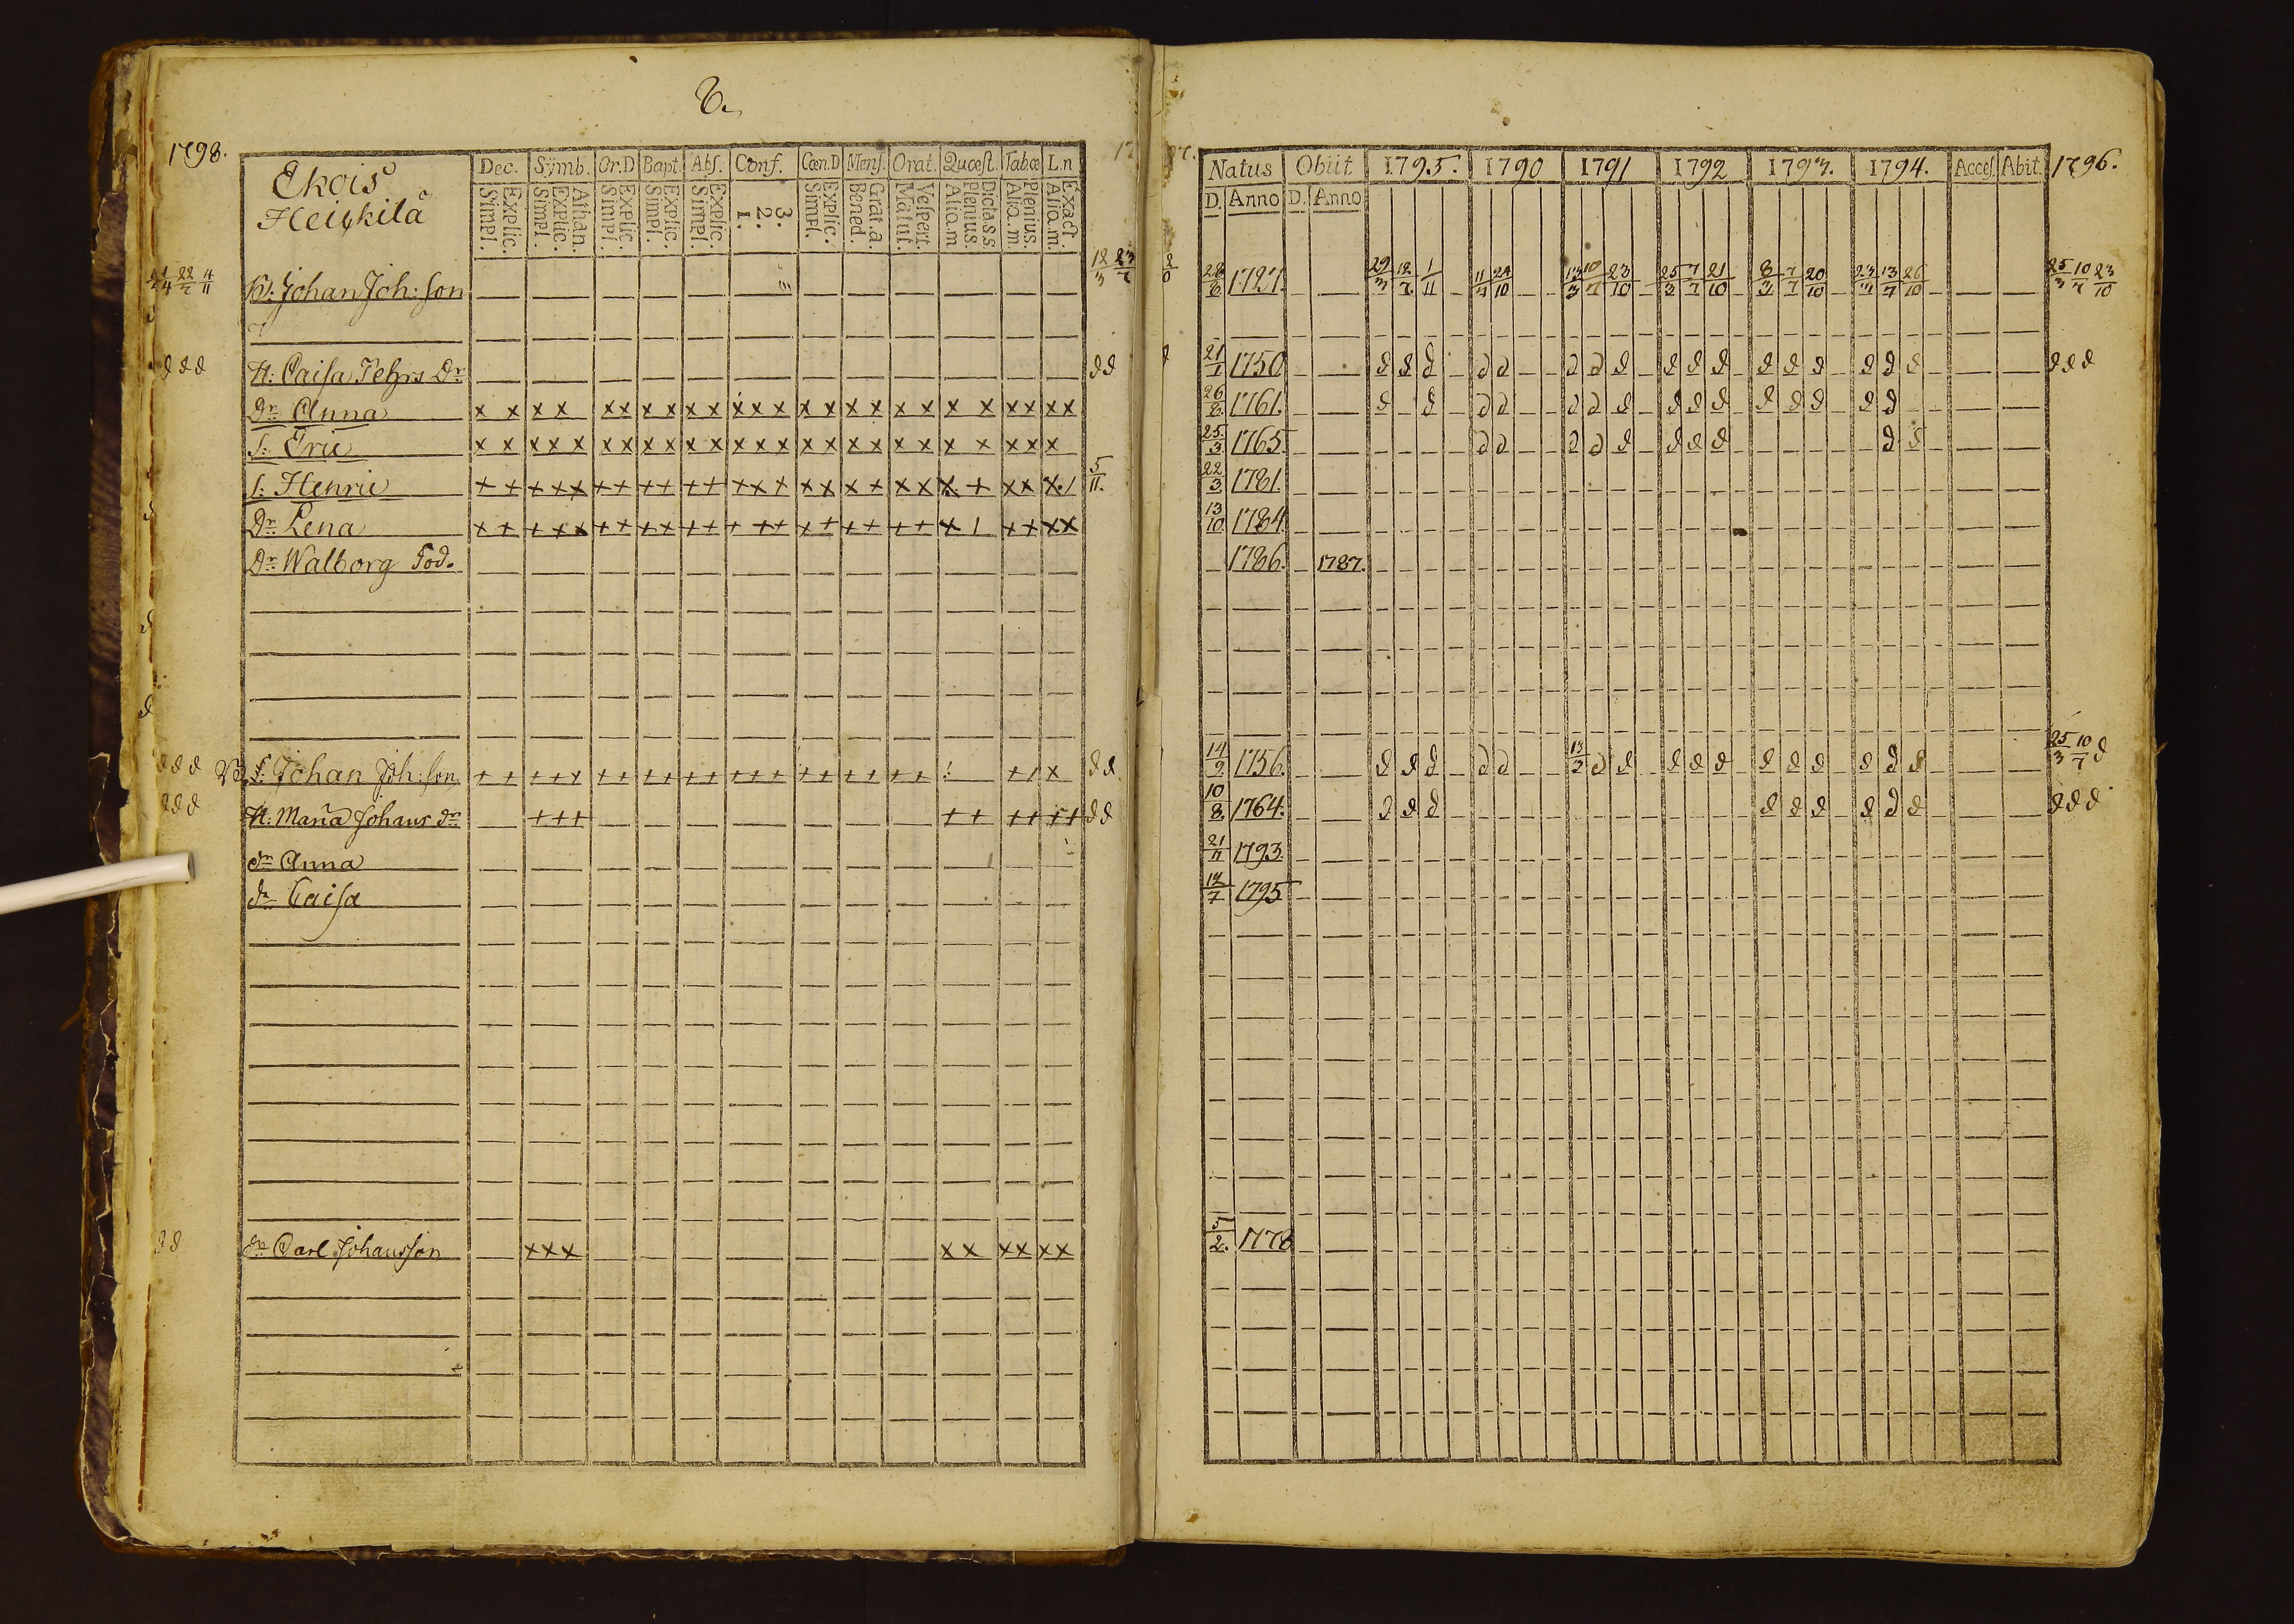 6.
1798.
Ekois
Heickilä
Dec. Symb. Or.D Bapt. Abs. Conf. Cœn.D Mens. Orat. Quæst. Tabœ L.n
Explic. Simpl. Athan. Explic. Simpl. Explic. Simpl. Explic. Simpl. Explic. Simpl. 3. 2. 1. Explic. Simpl. Grat.a. Bened. Vespert. Matut. Dictass. Plenius. Aliq.m Plenius. Aliq.m. Exact. Aliq.m.
Natus Obiit 1795. 1790 1791 1792 1793. 1794. Acces. Abit. 1796.
D. Anno D. Anno
22/7 4/11 Johan Joh:son 12/3 23/7
28/6 1727. 29/3 12/7 1/11 11/4 24/10 13/3 10/7 23/10 25/3 7/7 21/10 8/3 7/7 20/10 23/3 13/7 26/10 25/3 10/7 23/10
∂ ∂ ∂ H: Caisa Pehrs Dr ∂ ∂
21/1 1750 ∂ ∂ ∂ ∂ ∂ ∂ ∂ ∂ ∂ ∂ ∂ ∂ ∂ ∂ ∂ ∂ ∂ ∂ ∂ ∂
Dr Anna x x x x x x x x x x x x x x x x x x x x x x x x x
26/8 1761. ∂ ∂ ∂ ∂ ∂ ∂ ∂ ∂ ∂ ∂ ∂ ∂ ∂ ∂ ∂
S: Eric x x x x x x x x x x x x x x x x x x x x x x x x x
25/3 1765 ∂ ∂ ∂ ∂ ∂ ∂ ∂ ∂ ∂ ∂
S: Henric + + + + x + + + + + + + x + x x x + x x x + x x x / 5/11.
22/3 1781.
Dr Lena x + + x x + + x x + + + + + x + + + + + x / + + x x
13/10 1784
Dr Walborg Död.
1786. 1787.
∂ ∂ ∂ S: Johan Joh:son + + + + x + + + + + + + + + + + + + + + + / x ∂ ∂
14/9 1756. ∂ ∂ ∂ ∂ ∂ 13/3 ∂ ∂ ∂ ∂ ∂ ∂ ∂ ∂ ∂ ∂ ∂ 25/3 10/7 ∂
∂ ∂ ∂ H: Maria Johans dr + + + + + + + + + ∂ ∂
10/8 1764. ∂ ∂ ∂ ∂ ∂ ∂ ∂ ∂ ∂ ∂ ∂ ∂
dr Anna
21/11 1793.
dr Caisa
12/7 1795
∂ ∂ Carl Johansson x x x x x x x x x
5/2. 1778